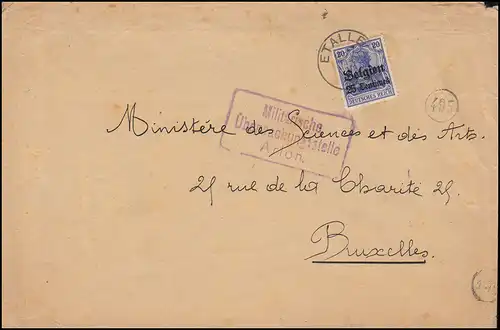 ETALLE
20 20
Belgien
25 Centimes
DEUTSCHES REICH
Militärische
Überwachungsstelle
Arlon.
Ministère des Sciences et des Arts.
25 rue de la Charité 25.
Bruxelles.